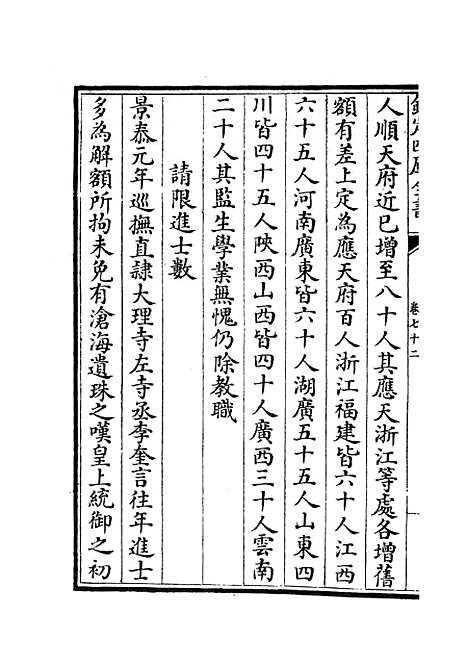 欽定四庫全書
卷七十二
人順天府近已增至八十人其應天浙江等處各增舊
額有差上定為應天府百人浙江福建皆六十人江西
六十五人河南廣東皆六十人湖廣五十五人山東四
川皆四十五人陜西山西皆四十人廣西三十人雲南
二十人其監生學業無愧仍除教職
請限進士數
景泰元年巡撫直隷大理寺左寺丞李奎言往年進士
多為解額所拘未免有滄海遺珠之嘆皇上統御之初